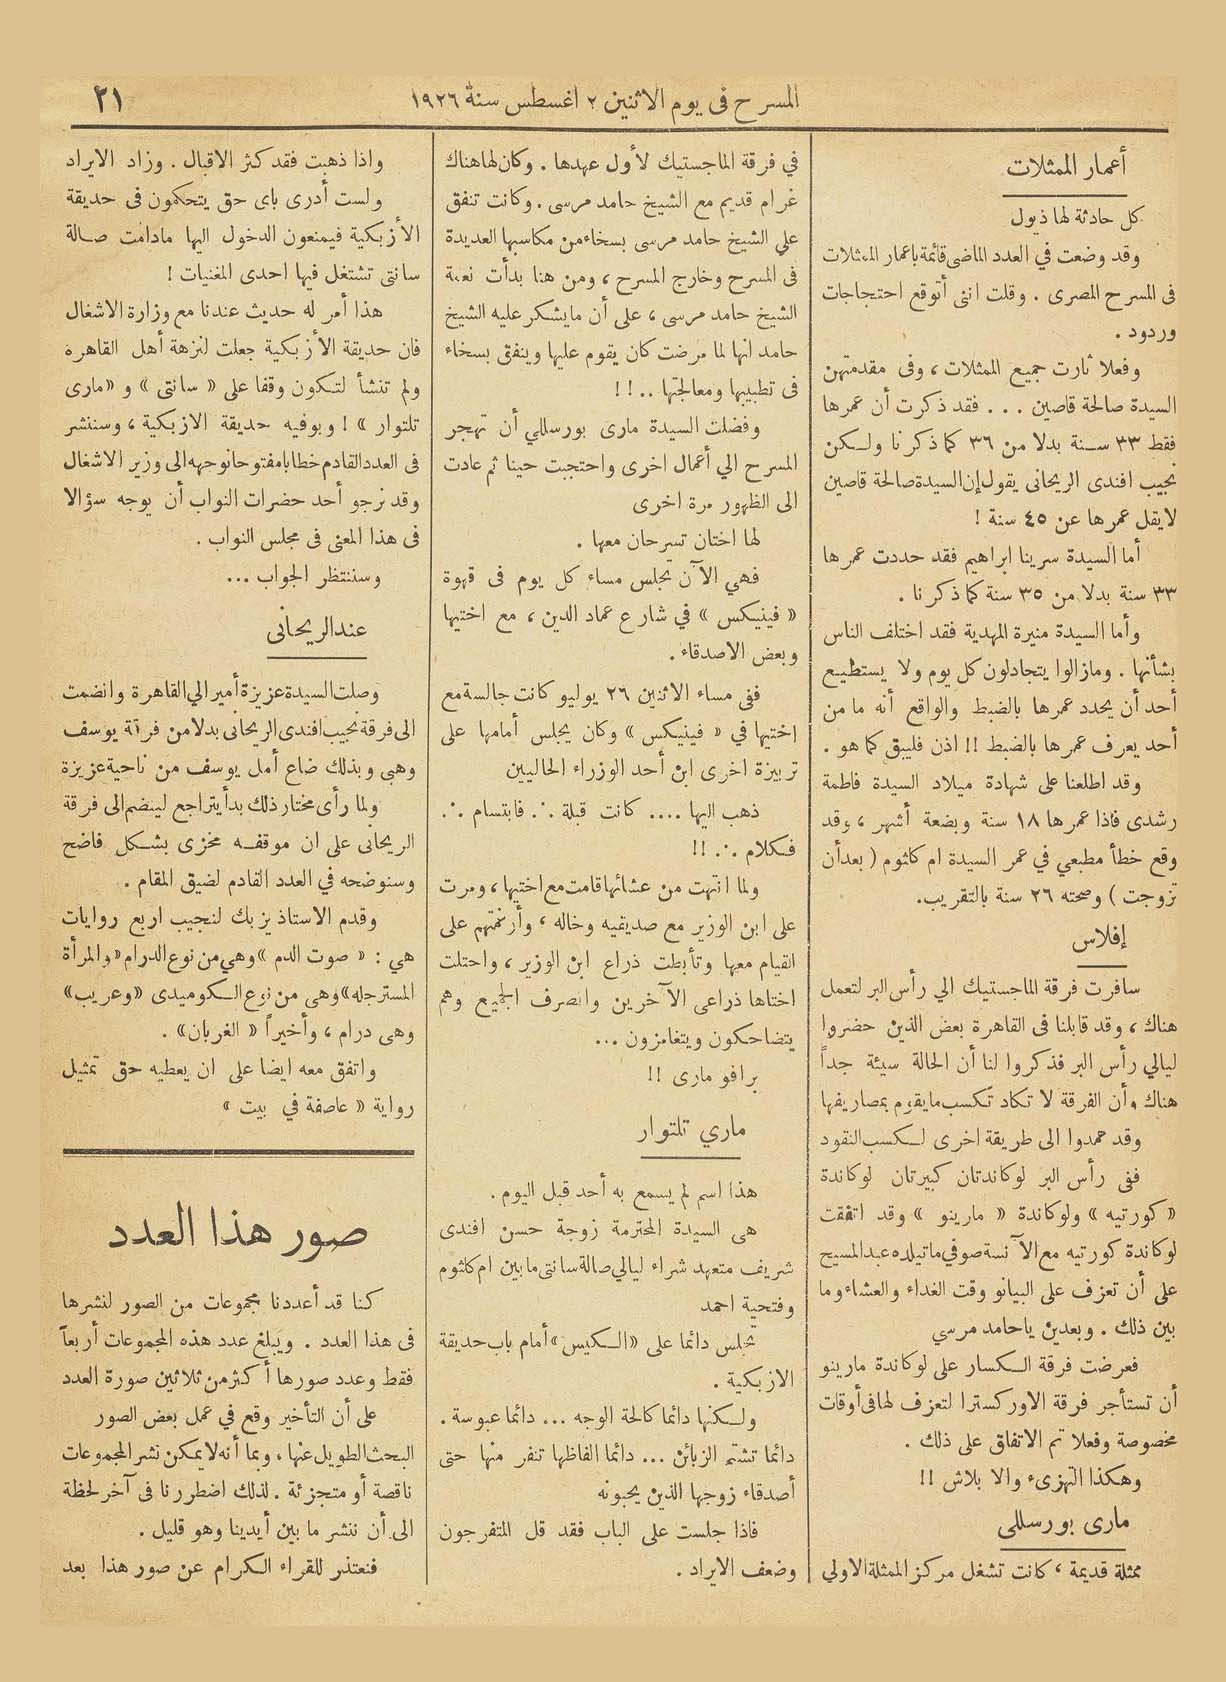 المسرح فى يوم الاثنين ٢ اغسطس سنة ١٩٢٦
٢١
أعمار الممثلات
كل حادثة لها ذيول
وقد وضعت في العدد الماضى قائمة باعمار الممثلات
فى المسرح المصرى . وقلت اننى أتوقع احتجاجات
وردود .
وفعلا ثارت جميع الممثلات ، وفى مقدمتهن
السيدة صالحة قاصين . . . فقد ذكرت أن عمرها
فقط ٣٣ سنة بدلا من ٣٦ كما ذكرنا ولكن
نجيب افندى الريحانى يقول إن السيدة صالحة قاصين
لا يقل عمرها عن ٤٥ سنة !
أما السيدة سرينا ابراهيم فقد حددت عمرها
٣٣ سنة بدلا من ٣٥ سنة كما ذكرنا .
وأما السيدة منيرة المهدية فقد اختلف الناس
بشأنها . ومازالوا يتجادلون كل يوم ولا يستطيع
أحد أن يحدد عمرها بالضبط والواقع أنه ما من
أحد يعرف عمرها بالضبط !! اذن فليبق كما هو .
وقد اطلعنا على شهادة ميلاد السيدة فاطمة
رشدى فاذا عمرها ١٨ سنة وبضعة أشهر ، وقد
وقع خطأ مطبعي في عمر السيدة ام كلثوم ( بعد أن
تزوجت ) وصحته ٢٦ سنة بالتقريب.
إفلاس
سافرت فرقة الماجستيك الي رأس البر لتعمل
هناك ، وقد قابلنا فى القاهرة بعض الذين حضروا
ليالي رأس البر فذكروا لنا أن الحالة سيئة جداً
هناك وأن الفرقة لا تكاد تكسب ما يقوم بمصاريفها
وقد عمدوا الى طريقة اخرى لكسب النقود
ففى رأس البر لوكاندتان كبيرتان لوكاندة
« كورتيه » ولوكاندة « مارينو » وقد اتفقت
لوكاندة كورتيه مع الآنسة صوفي ماتيلده عبد المسيح
على أن تعزف على البيانو وقت الغداء والعشاء وما
بين ذلك . وبعدين ياحامد مرسي
فعرضت فرقة الكسار على لوكاندة مارينو
أن تستأجر فرقة الاوركسترا لتعزف لها فى أوقات
مخصوصة وفعلا تم الاتفاق على ذلك .
وهكذا التهزىء والا بلاش !!
مارى بورسللى
ممثلة قديمة ، كانت تشغل مركز الممثلة الاولي
في فرقة الماجستيك لأول عهدها . وكان لها هناك
غرام قديم مع الشيخ حامد مرسى . وكانت تنفق
علي الشيخ حامد مرسى بسخاء من مكاسبها العديدة
فى المسرح وخارج المسرح ، ومن هنا بدأت نعمة
الشيخ حامد مرسى ، على أن ما يشكر عليه الشيخ
حامد انها لما مرضت كان يقوم عليها وينفق بسخاء
فى تطبيبها ومعالجتها .. ! !
وفضلت السيدة مارى بورسللي أن تهجر
المسرح الي أعمال اخرى واحتجبت حينا ثم عادت
الى الظهور مرة اخرى
لها اختان تسرحان معها .
فهي الآن تجلس مساء كل يوم فى قهوة
« فينيكس » في شارع عماد الدين ، مع اختيها
وبعض الاصدقاء .
ففى مساء الاثنين ٢٦ يوليو كانت جالسة مع
اختيها في « فينيكس » وكان يجلس أمامها على
تربيزة اخرى ابن أحد الوزراء الحاليين
ذهب اليها .... كانت قبلة .·. فابتسام .·.
فكلام .·. !!
ولما انتهت من عشائها قامت مع اختيها ، ومرت
على ابن الوزير مع صديقيه وخاله ، وأرغمتهم على
القيام معها وتأبطت ذراع ابن الوزير ، واحتلت
اختاها ذراعى الآخرين وانصرف الجميع وهم
يتضاحكون ويتغامزون ...
برافو مارى !!
ماري تلتوار
هذا اسم لم يسمع به أحد قبل اليوم .
هى السيدة المحترمة زوجة حسن افندى
شريف متعهد شراء ليالي صالة سانتى ما بين ام كلثوم
وفتحية احمد
تجلس دائما على «الكيس» أمام باب حديقة
الازبكية .
ولكنها دائما كالحة الوجه ... دائما عبوسة .
دائما تشتم الزبائن ... دائما الفاظها تنفر منها حتى
أصدقاء زوجها الذين يحبونه
فاذا جلست على الباب فقد قل المتفرجون
وضعف الايراد .
واذا ذهبت فقد كثر الاقبال . وزاد الايراد
ولست أدرى باى حق يتحكمون فى حديقة
الأزبكية فيمنعون الدخول اليها مادامت صالة
سانتى تشتغل فيها احدى المغنيات !
هذا أمر له حديث عندنا مع وزارة الاشغال
فان حديقة الأزبكية جعلت لنزهة أهل القاهرة
ولم تنشأ لتكون وقفا على « سانتى » و « مارى
تلتوار » ! وبوفيه حديقة الازبكية ، وسننشر
فى العدد القادم خطابا مفتوحا نوجهه الى وزير الاشغال
وقد نرجو أحد حضرات النواب أن يوجه سؤالا
فى هذا المعنى فى مجلس النواب .
وسننتظر الجواب ...
عند الريحانى
وصلت السيدة عزيزة أمير الي القاهرة وانضمت
الى فرقة نجيب افندى الريحانى بدلا من فرقة يوسف
وهبى وبذلك ضاع أمل يوسف من ناحية عزيزة
ولما رأى مختار ذلك بدأ يتراجع لينضم الى فرقة
الريحانى على ان موقفه مخزى بشكل فاضح
وسنوضحه في العدد القادم لضيق المقام .
وقدم الاستاذ يزبك لنجيب اربع روايات
هي : « صوت الدم » وهي من نوع الدرام «والمرأة
المسترجله» وهى من نوع الكوميدى «وعريب»
وهى درام ، وأخيراً « الغربان» .
واتفق معه ايضا على ان يعطيه حق تمثيل
رواية « عاصفة في بيت »
صور هذا العدد
كنا قد أعددنا مجموعات من الصور لنشرها
فى هذا العدد . ويبلغ عدد هذه المجموعات أربعاً
فقط وعدد صورها أكثر من ثلاثين صورة العدد
على أن التأخير وقع في عمل بعض الصور
البحث الطويل عنها ، وبما أنه لا يمكن نشر المجموعات
ناقصة أو متجزئة . لذلك اضطررنا فى آخر لحظة
الى أن ننشر ما بين أيدينا وهو قليل .
فنعتذر للقراء الكرام عن صور هذا بعد